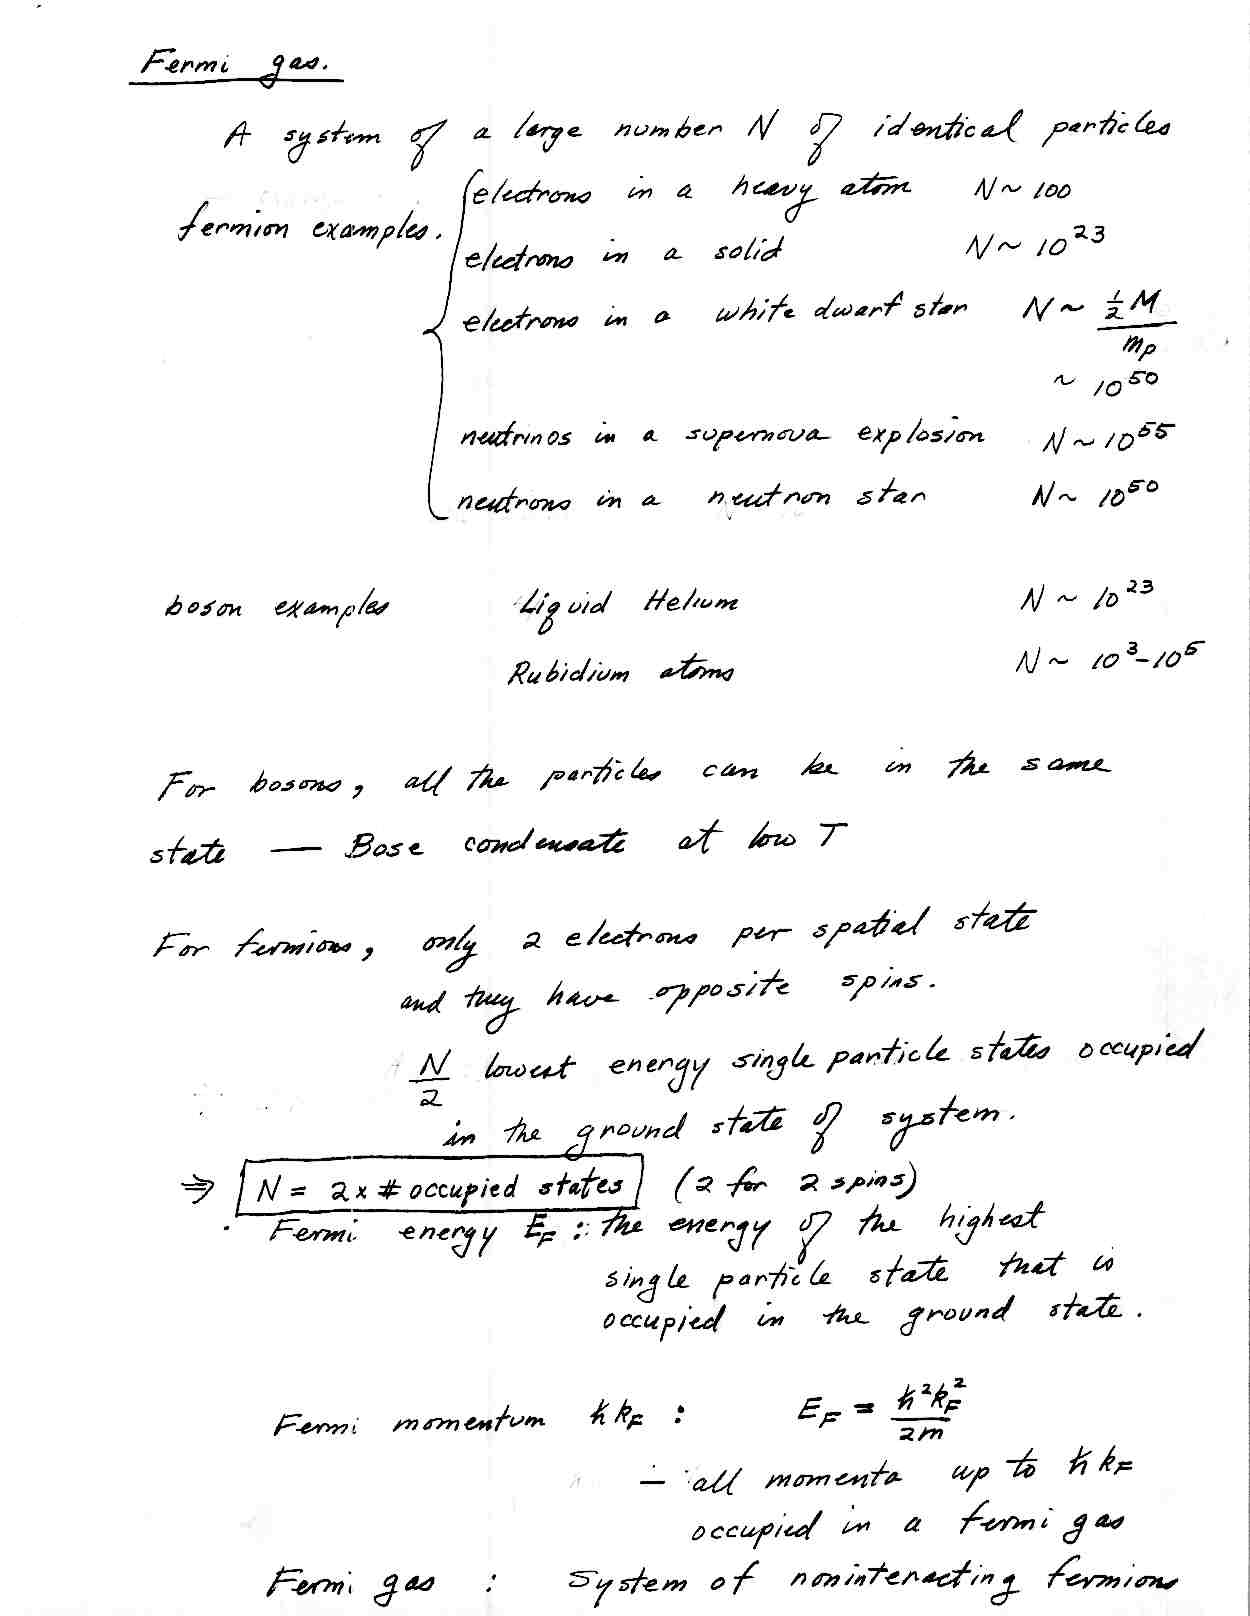 Fermi gas.
A system of a large number N of identical particles
fermion examples.
electrons in a heavy atom N ~ 100
electrons in a solid N ~ 10²³
electrons in a white dwarf star N ~ ½M / mₚ
~ 10⁵⁰
neutrinos in a supernova explosion N ~ 10⁵⁵
neutrons in a neutron star N ~ 10⁵⁰
boson examples Liquid Helium N ~ 10²³
Rubidium atoms N ~ 10³–10⁵
For bosons, all the particles can be in the same
state — Bose condensate at low T
For fermions, only 2 electrons per spatial state
and they have opposite spins.
N/2 lowest energy single particle states occupied
in the ground state of system.
⇒ N = 2 x # occupied states (2 for 2 spins)
Fermi energy E_F : the energy of the highest
single particle state that is
occupied in the ground state.
Fermi momentum ħk_F : E_F = ħ²k_F² / 2m
— all momenta up to ħk_F
occupied in a fermi gas
Fermi gas : System of noninteracting fermions